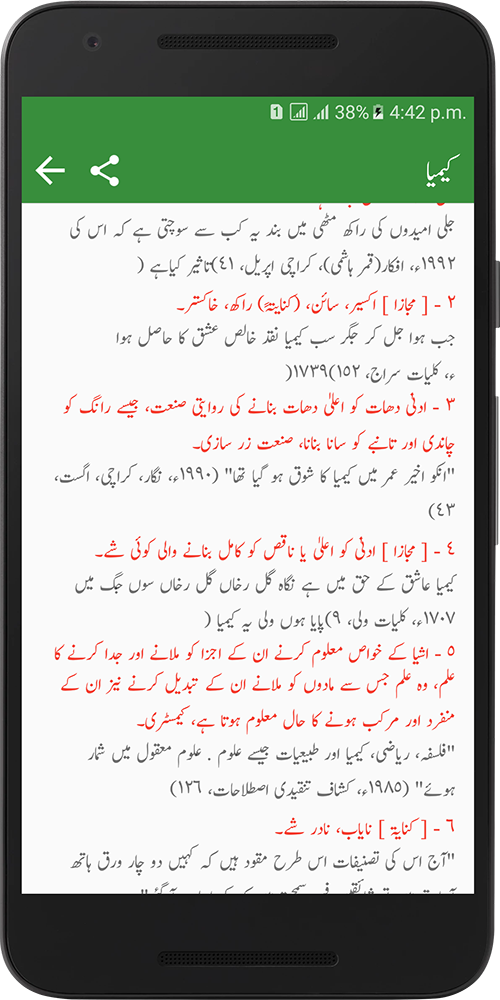 38% 4:42 p.m.
کیمیا
جلی امیدوں کی راکھ مٹھی میں بند یہ کب سے سوچتی ہے کہ اس کی
١٩٩٢ء، افکار(قمر ہاشمی)، کراچی اپریل، ٤١)تاثیر کیاہے (
٢ - [ مجازا ] اکسیر، سائن، (کنایتہً) راکھ، خاکستر۔
جب ہوا جل کر جگر سب کیمیا نقد خالص عشق کا حاصل ہوا
ء، کلیات سراج، ١٥٢)١٧٣٩(
٣ - ادنٰی دھات کو اعلٰی دھات بنانے کی روایتی صنعت، جیسے رانگ کو
چاندی اور تانبے کو سانا بنانا، صنعت زر سازی۔
"انکو اخیر عمر میں کیمیا کا شوق ہو گیا تھا" (١٩٩٠ء، نگار، کراچی، اگست،
٤٣)
٤ - [ مجازا ] ادنٰی کو اعلٰی یا ناقص کو کامل بنانے والی کوئی شے۔
کیمیا عاشق کے حق میں ہے نگاہ گل رخاں گل رخاں سوں جگ میں
١٧٠٧ء، کلیات ولی، ٩)پایا ہوں ولی یہ کیمیا (
٥ - اشیا کے خواص معلوم کرنے ان کے اجزا کو ملانے اور جدا کرنے کا
علم، وہ علم جس سے مادوں کو ملانے ان کے تبدیل کرنے نیز ان کے
منفرد اور مرکب ہونے کا حال معلوم ہوتا ہے، کیمسٹری۔
"فلسفہ، ریاضی، کیمیا اور طبیعیات جیسے علوم . علوم معقول میں شمار
ہوئے" (١٩٨٥ء، کشاف تنقیدی اصطلاحات، ١٢٦)
٦ - [ کنایۃ ] نایاب، نادر شے۔
"آج اس کی تصنیفات اس طرح مقود ہیں کہ کہیں دو چار ورق ہاتھ